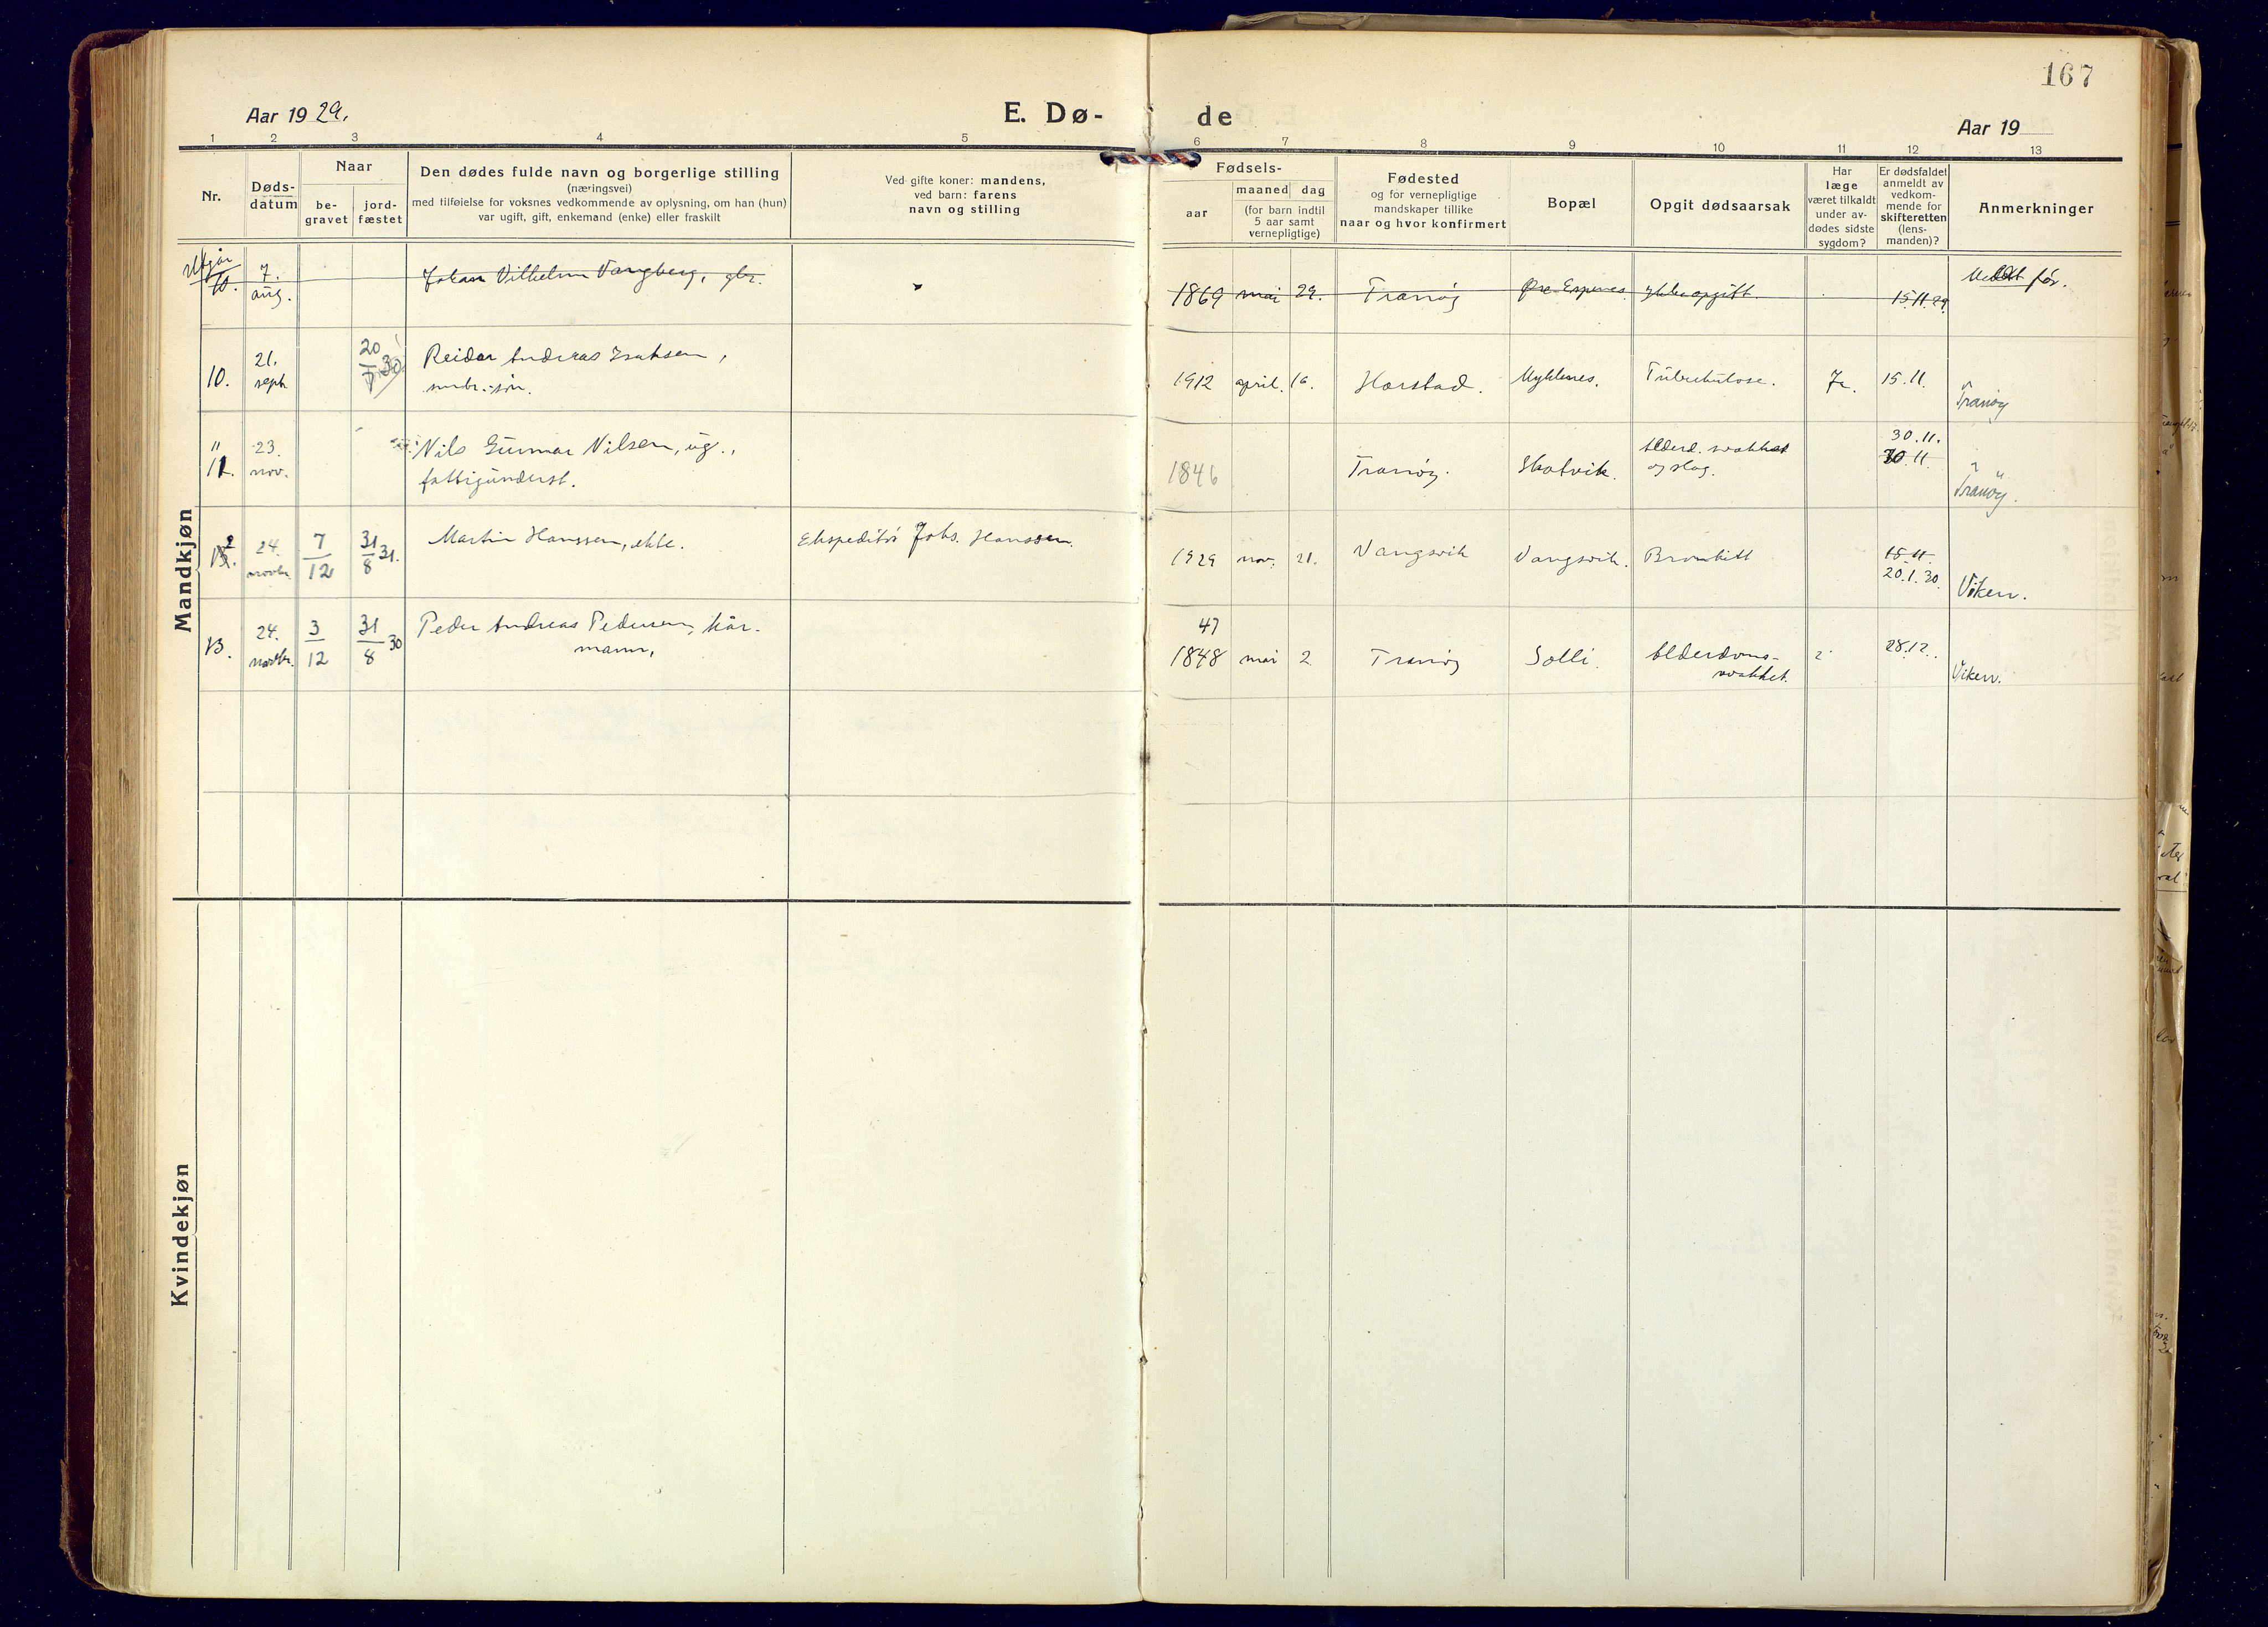 167
Aar 19 29.
E. Dø-
de
Aar 19
1 2 3 4 5 6 7 8 9 10 11 12 13
Nr.
Døds-
datum
Naar
be-
gravet
jord-
fæstet
Den dødes fulde navn og borgerlige stilling
(næringsvei)
med tilføielse for voksnes vedkommende av oplysning, om han (hun)
var ugift, gift, enkemand (enke) eller fraskilt
Ved gifte koner: mandens,
ved barn: farens
navn og stilling
Fødsels-
aar
maaned dag
(for barn indtil
5 aar samt
vernepligtige)
Fødested
og for vernepligtige
mandskaper tillike
naar og hvor konfirmert
Bopæl
Opgit dødsaarsak
Har
læge
været tilkaldt
under av-
dødes sidste
sygdom?
Er dødsfaldet
anmeldt av
vedkom-
mende for
skifteretten
(lens-
manden)?
Anmerkninger
Mandkjøn
Utgår
10.
7.
aug.
Johan Vilhelm Vangberg, gbr.
1869 mai 29. Tranøy
Øvre Espenes.
ikke opgitt.
15.11.29.
Meldt før.
10.
21.
sept.
20
30
Reidar Andreas Isaksen,
småbr.-søn.
1912 april. 16. Harstad. Myklenes. Tuberkulose. Ja. 15.11.
Tranøy
11.
23.
nov.
Nils Gunnar Nilsen, ug.,
fattigunderst.
1846
Tranøy. Skatvik.
Alderd. svakhet
og slag.
30.11.
30.11.
Tranøy.
12.
24.
novbr.
7
12
31
8 31.
Martin Hanssen, ekte.
Ekspeditør Johs. Hanssen.
1929 nov. 21. Vangsvik Vangsvik. Bronkitt
15.11.
20.1.30.
Viken.
13.
24.
novbr.
3
12
31
8 30
Peder Andreas Pedersen, kår-
mann,
47
1848 mai 2 Tranøy Solli.
Alderdoms-
svakhet.
28.12.
Viken.
Kvindekjøn